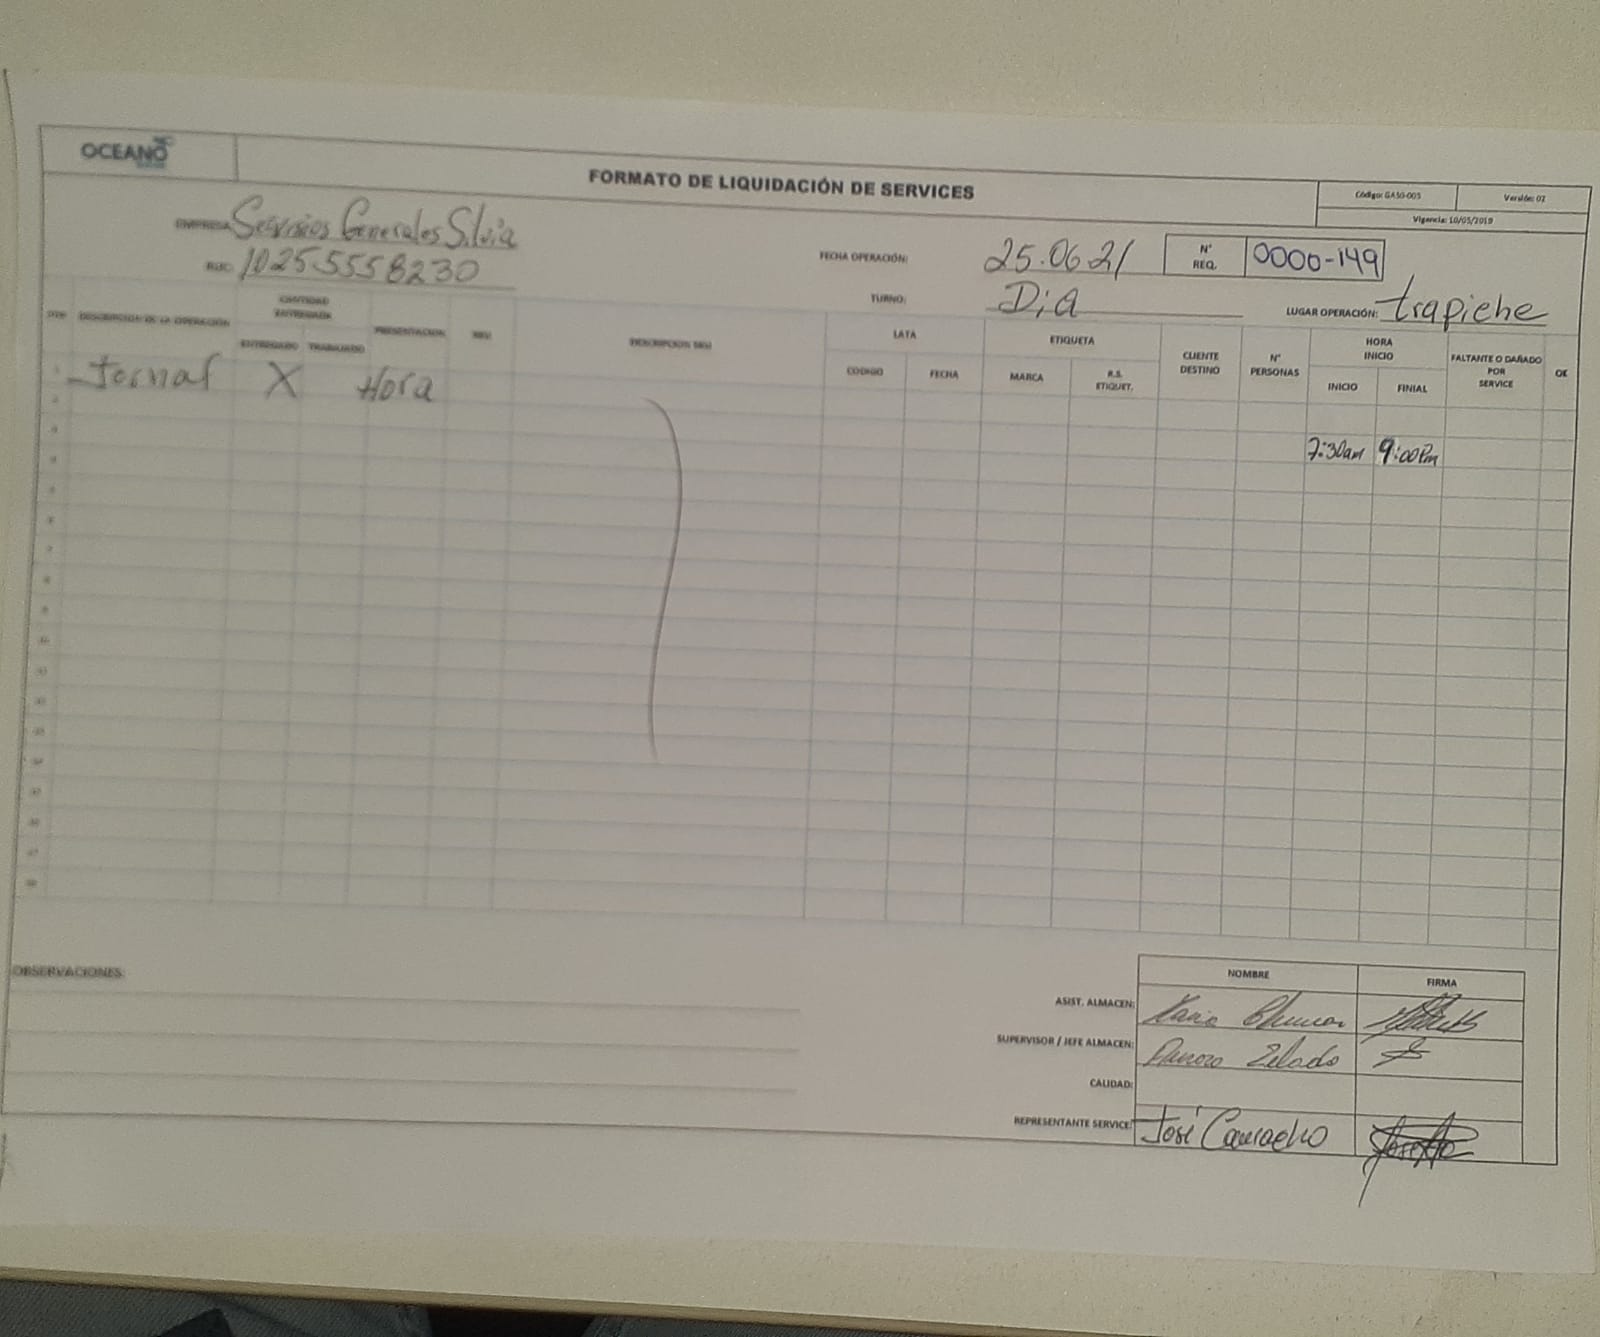 OCEANO
FORMATO DE LIQUIDACIÓN DE SERVICES
Código: GASG-003
Versión: 02
Vigencia: 10/05/2019
EMPRESA: Servisios Generales Silvia
RUC: 10255558230
FECHA OPERACIÓN: 25.06.21
N° REQ. 0000-149
TURNO: Dia
LUGAR OPERACIÓN: trapiche
DESCRIPCION DE LA OPERACIÓN
CANTIDAD ENTREGADA
ENTREGADO TRABAJADO
PRESENTACION
SKU
DESCRIPCION SKU
LATA
CODIGO FECHA
ETIQUETA
MARCA R.S. ETIQUET.
CLIENTE DESTINO
N° PERSONAS
HORA INICIO
INICIO FINIAL
FALTANTE O DAÑADO POR SERVICE
OK
Jornal X Hora
7:30am 9:00Pm
OBSERVACIONES:
NOMBRE FIRMA
ASIST. ALMACEN:
SUPERVISOR / JEFE ALMACEN:
CALIDAD:
REPRESENTANTE SERVICE: José Camacho